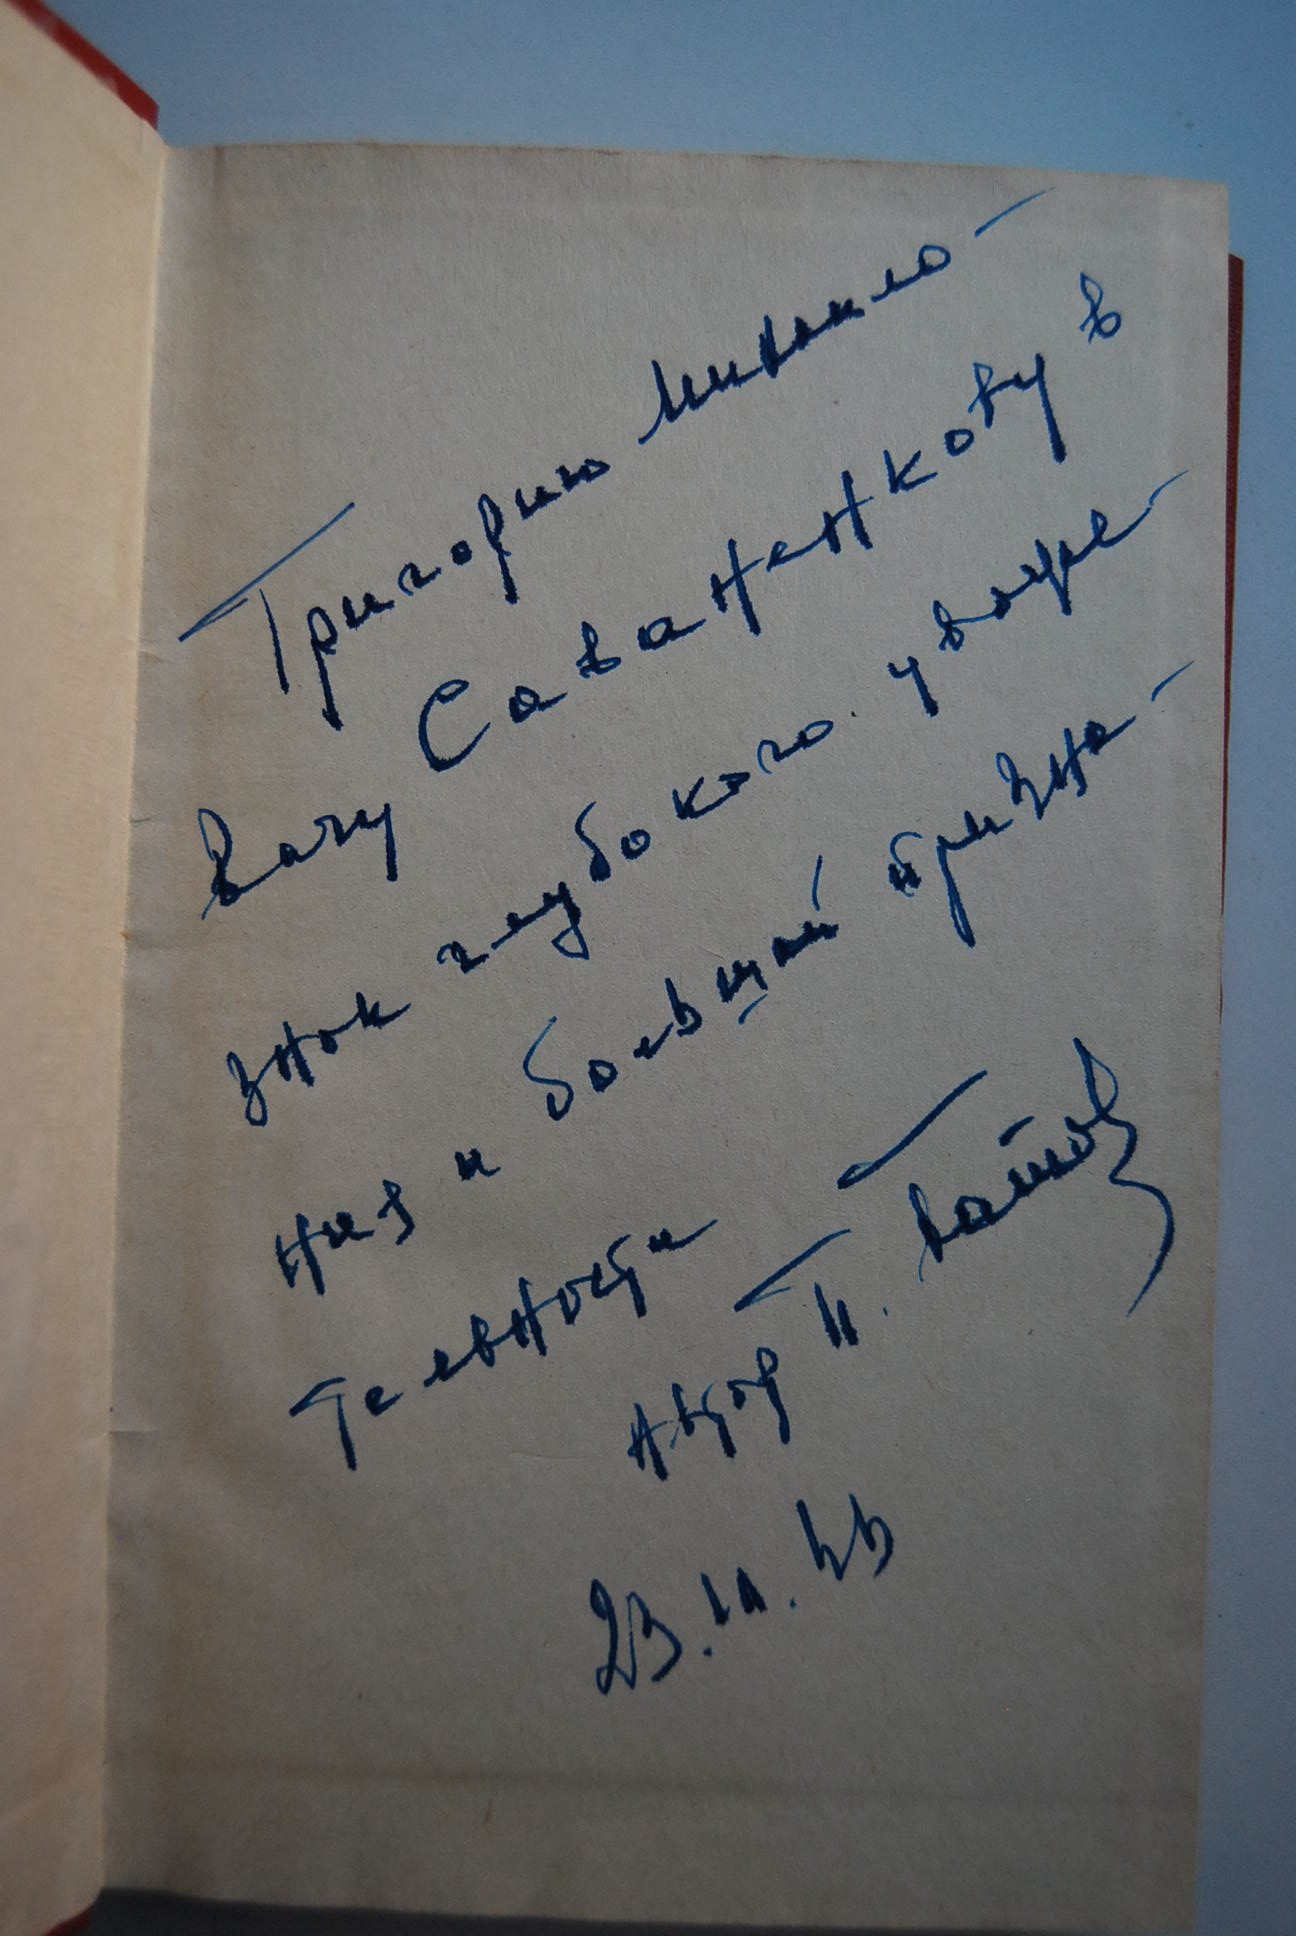 Григорию Михайло-
вичу Саваненкову в
знак глубокого уваже-
ния и боевой призна-
тельности
Автор П. Батов